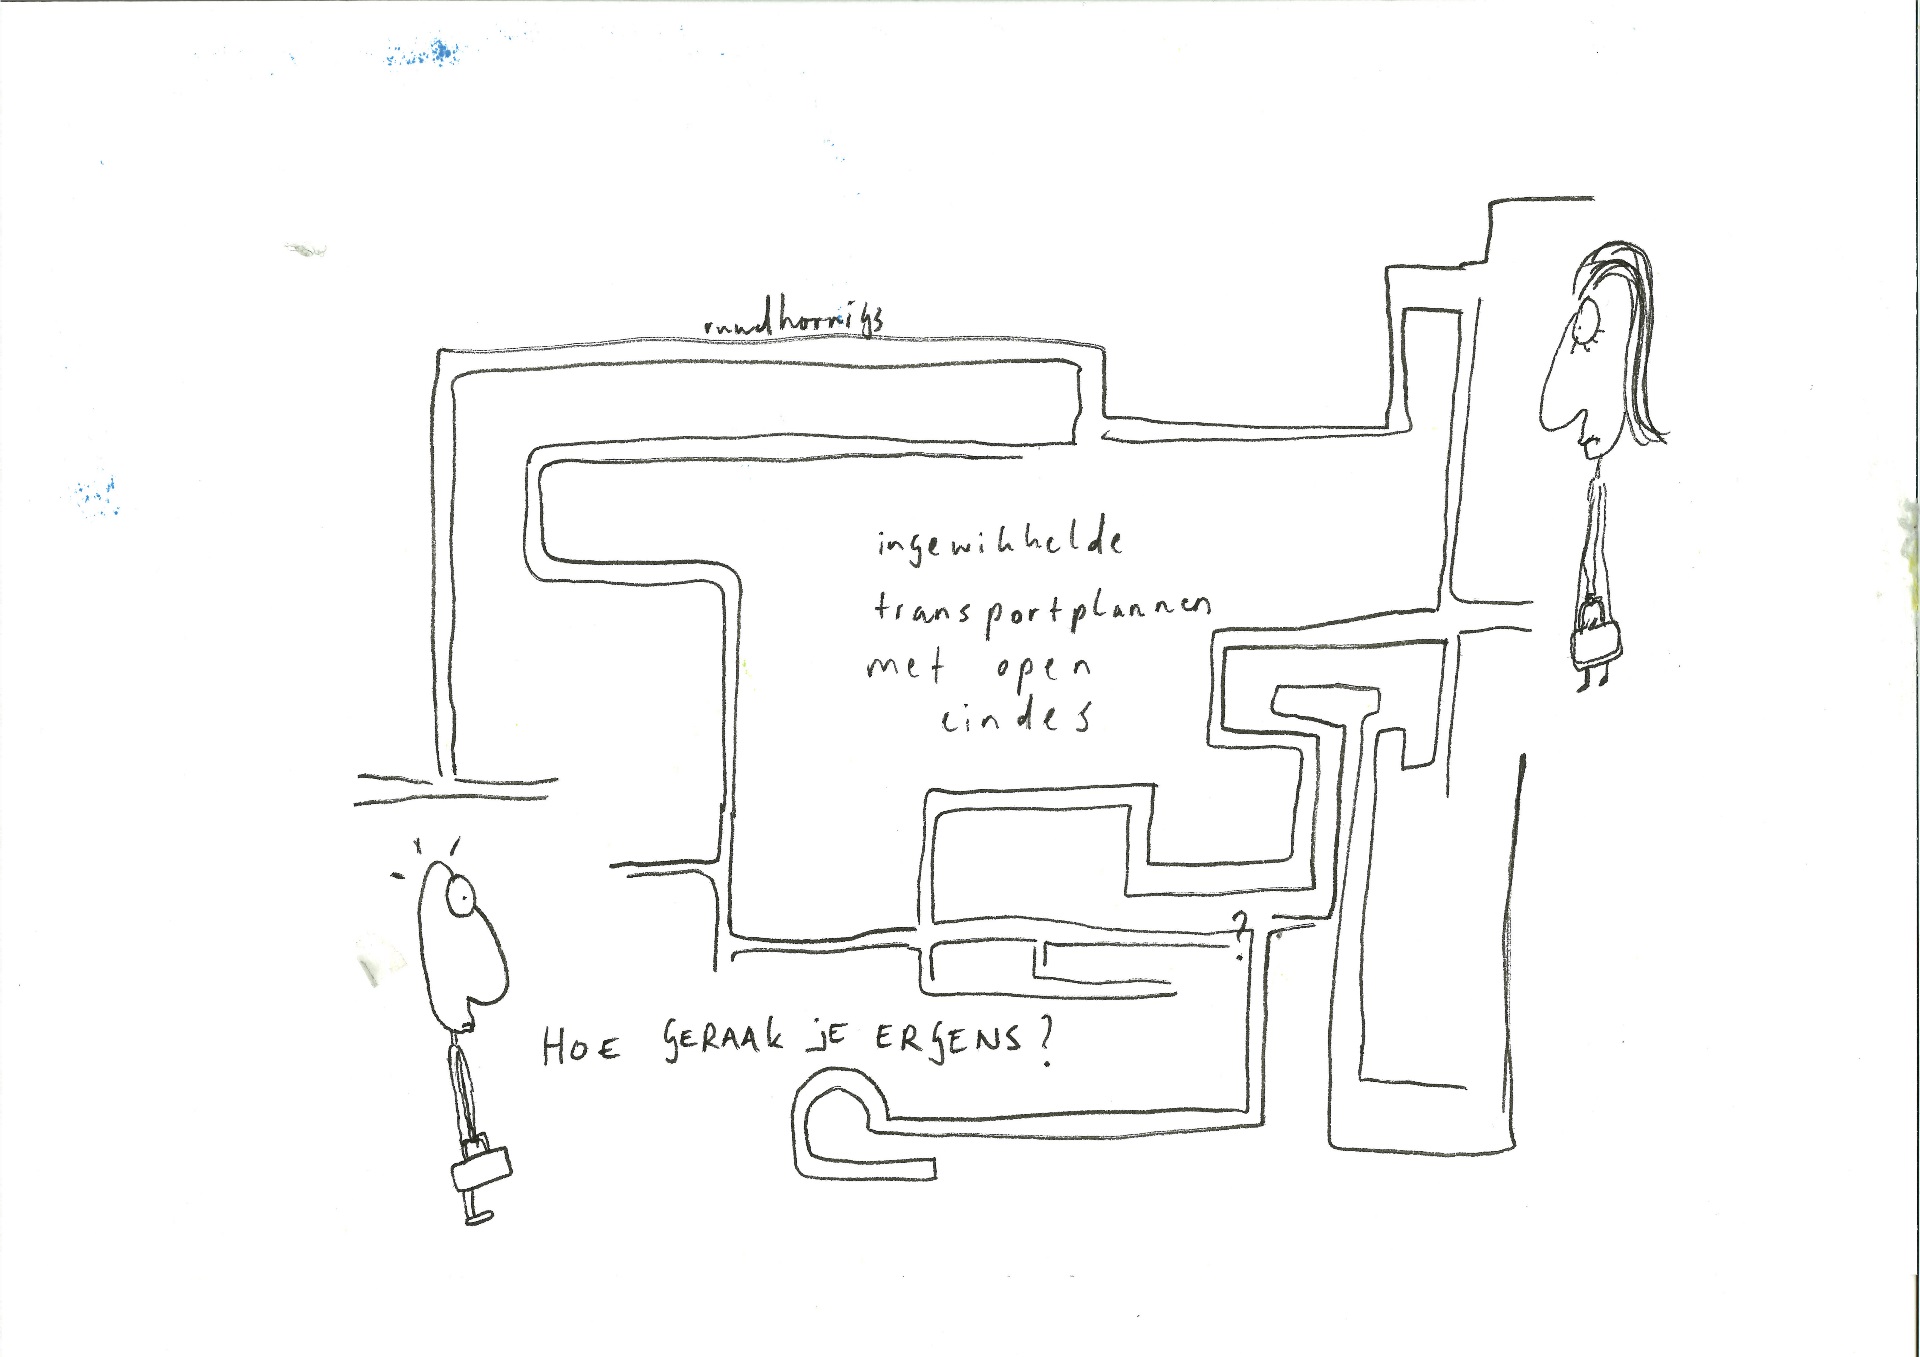 ruudhornigs
ingewikkelde
transportplannen
met open
eindes
?
HOE GERAAK jE ERGENS?